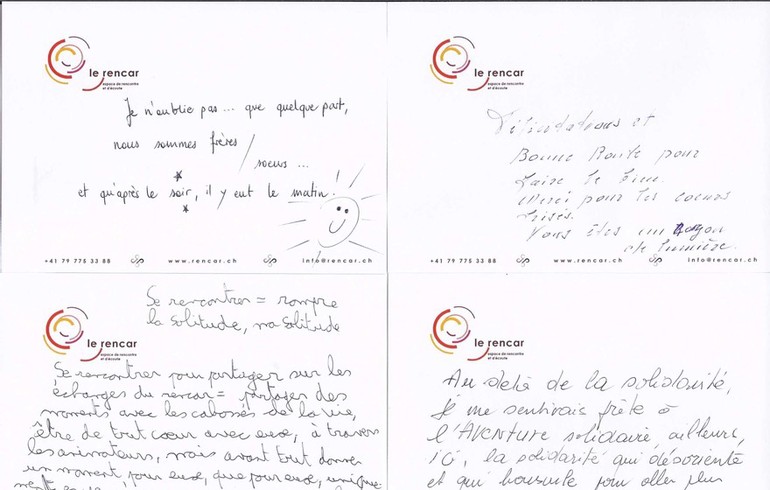 le rencar
espace de rencontre
et d'écoute
Je n'oublie pas ... que quelque part,
nous sommes frères /
soeurs ...
et qu'après le soir, il y eut le matin !
+41 79 775 33 88 www.rencar.ch info@rencar.ch
le rencar
espace de rencontre
et d'écoute
Félicitations et
Bonne Route pour
faire le bien.
Merci pour les coeurs
brisés.
Vous êtes un Rayon
de lumière.
+41 79 775 33 88 www.rencar.ch info@rencar.ch
Se rencontrer = rompre
la solitude, ma solitude
le rencar
espace de rencontre
et d'écoute
Se rencontrer pour partager sur les
échanges du rencar = partager des
moments avec les cabossés de la vie,
être de tout cœur avec eux, à travers
les animateurs, mais avant tout donner
un moment, pour eux, que pour eux,
le rencar
espace de rencontre
et d'écoute
Au delà de la solidarité,
je me sentirais prête à
l'AVENTURE solidaire, ailleurs,
ici, la solidarité qui désoriente
et qui bouscule pour aller plus